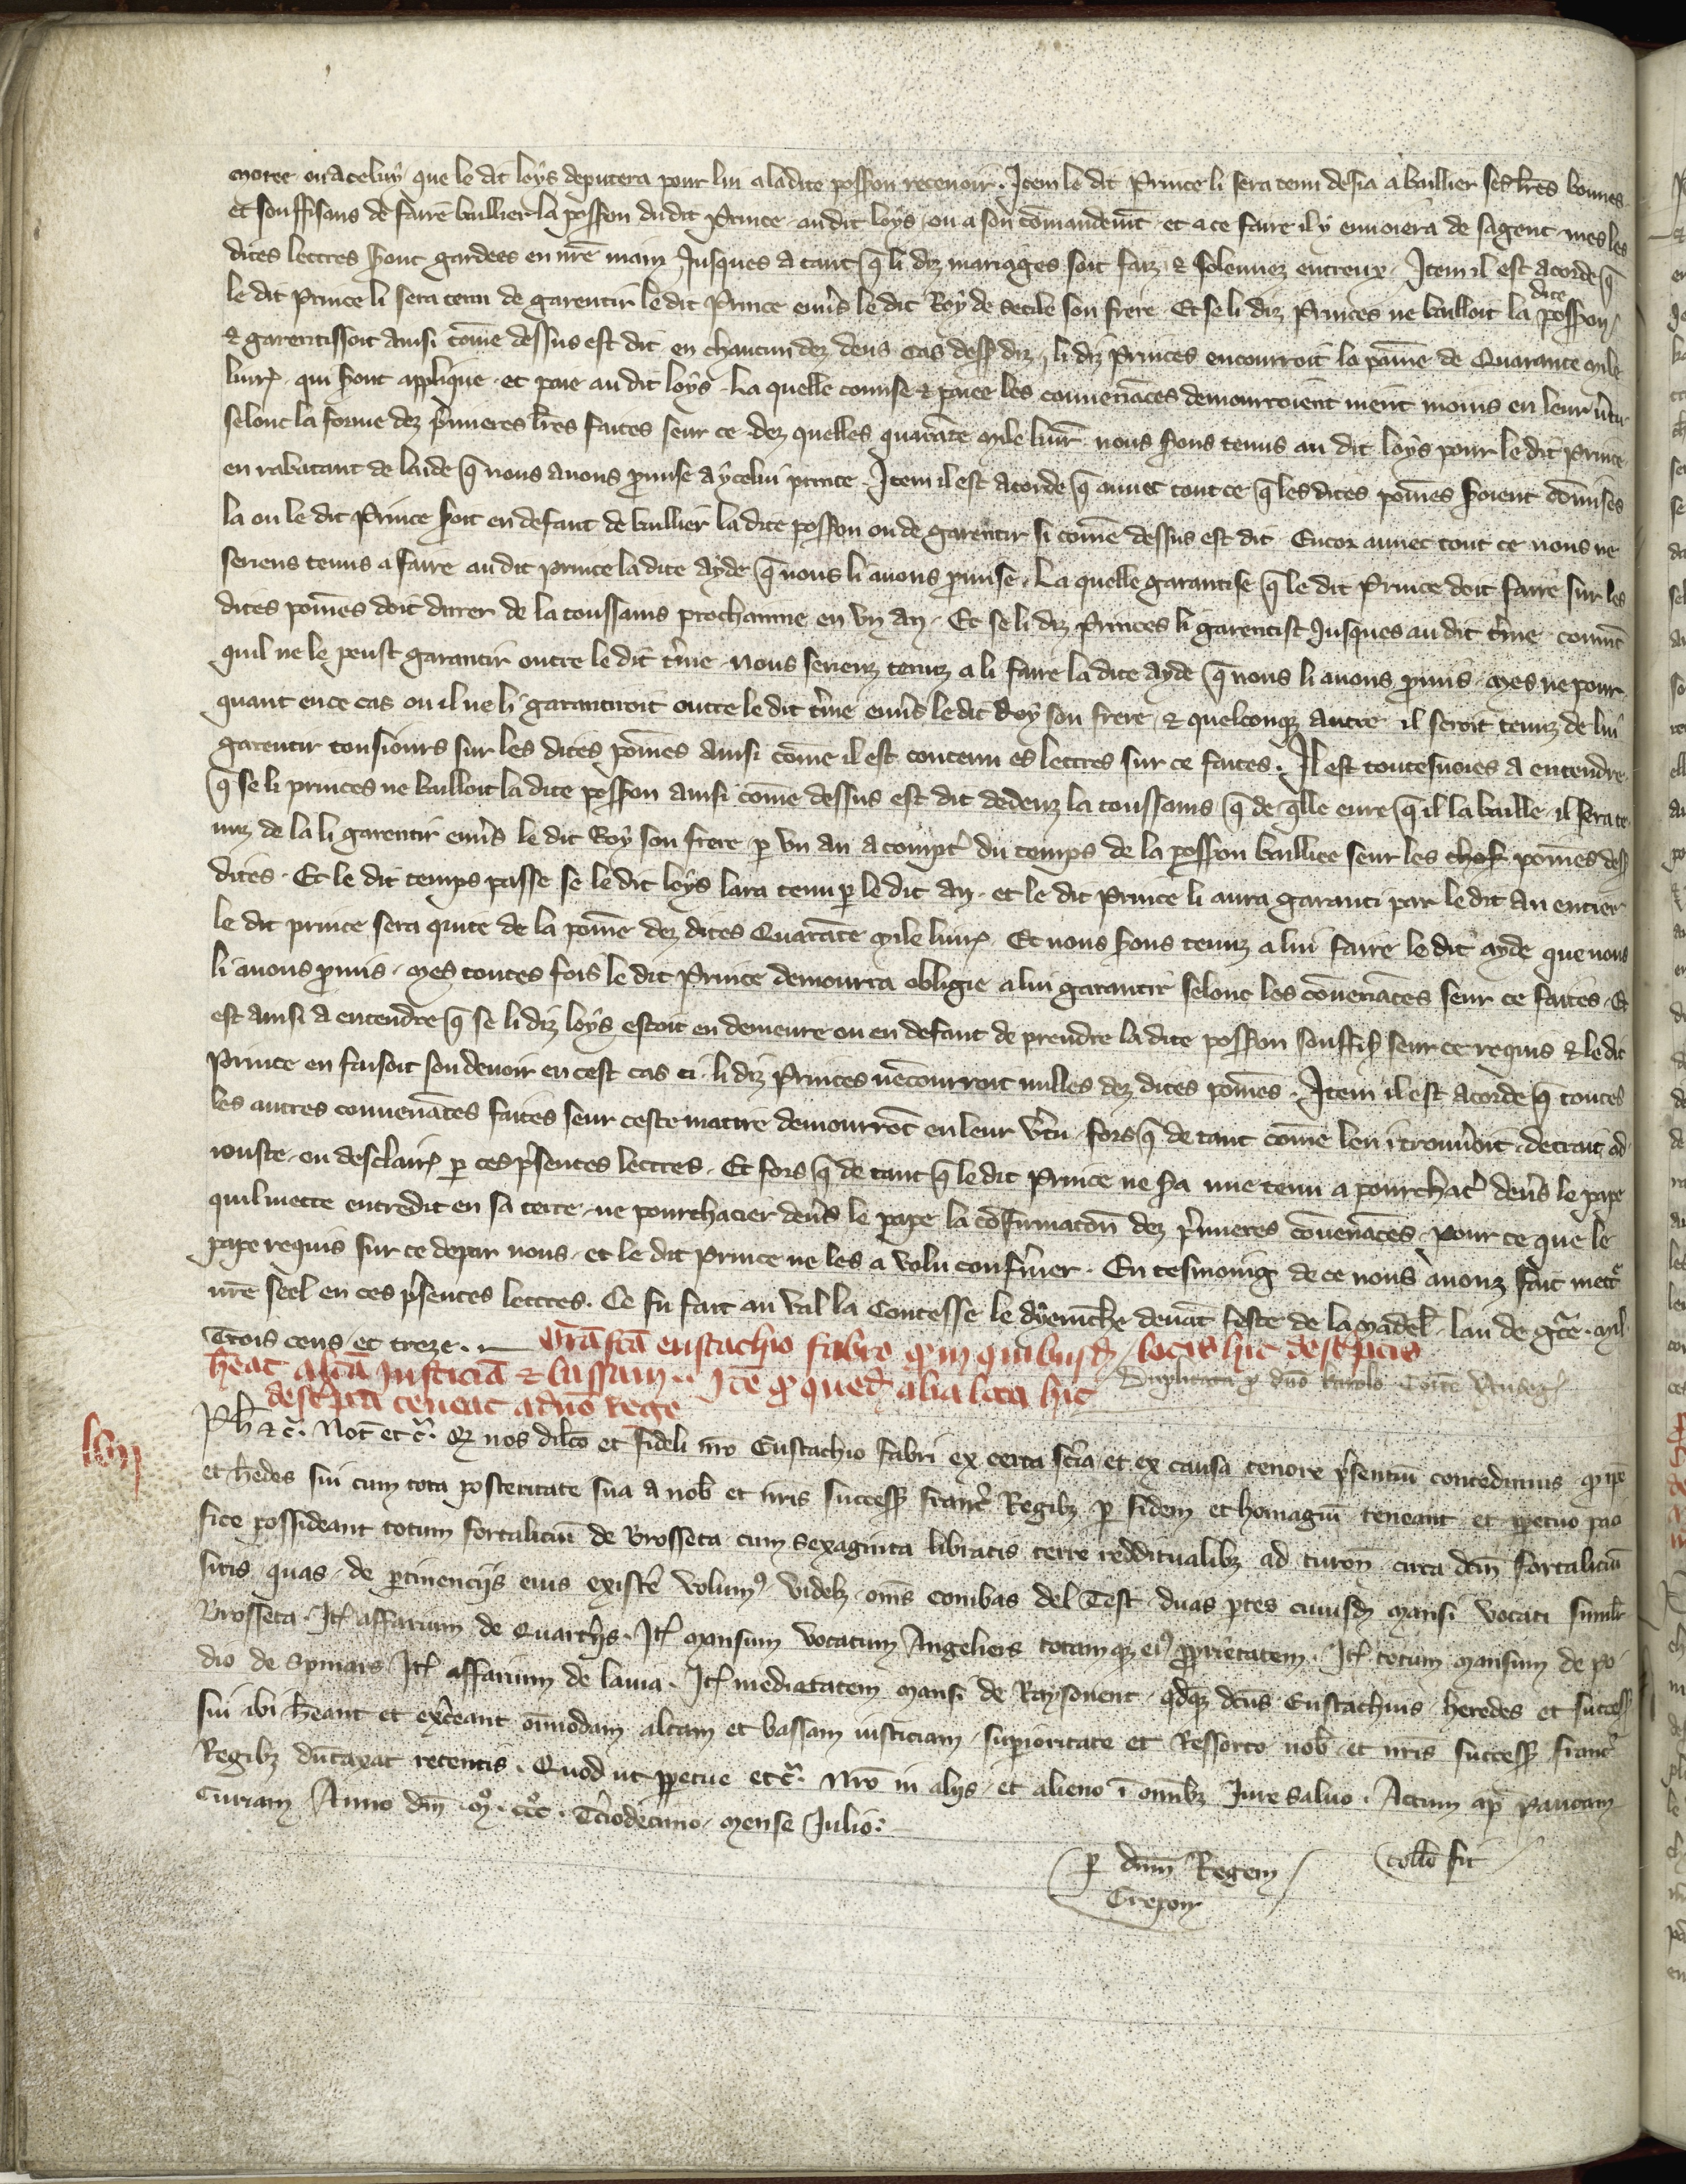 moree ou a celuy que le dit loys deputera pour lui a ladite possion recevoir. Item le dit Prince li sera tenu desia a baillier ses lres bonnes
et souffisans de faire baillier la possion du dit Prince au dit loys ou a son comandemt et a ce faire il y envoiera de sa gent mes les
dites lettres seront gardees en nre main Jusques a tant q li diz mariages soit faiz & solennez entreux. Item il est acorde q
le dit Prince li sera tenu de garentir le dit Prince envs le dit Roy de secile son frere. Et se li diz Princes ne bailloit la dite possion
& garentissoit ainsi come dessus est dit en chaucun dez deus cas dess diz, li diz Princes encourroit la paine de Quarante mile
livr qui sont applique et paie au dit loys. La quelle comise & paiee les convenances demourroient ment moins en leur vtu
selonc la forme dez pmieres lres faites seur ce dez quelles quarate mile livr nous sons tenus au dit loys pour le dit Prince
en rabatant de laide q nous avons pmise a ycelui prince. Item il est acorde q avuec tout ce q les dites poines soient comises
la ou le dit Prince soit en defaut de baillier la dite possion ou de garentir si come dessus est dit. Encor avuec tout ce nous ne
seriens tenus a faire au dit prince la dite ayde q nous li avons pmise. La quelle garantise q le dit Prince doit faire sur les
dites poines doit durer de la toussains prochainne en un an. Et se li diz Princes li garentist Jusques au dit tme comt
quil ne le peust garantir outre le dit tme nous serienz tenuz a li faire la dite ayde q nous li avons pmis. Mes ne pour
quant en ce cas ou il ne li garantiroit outre le dit tme envs le dit Roy son frere & quelconq autre il seroit tenuz de lui
garentir tousiours sur les dites poines ainsi come il est contenu es lettres sur ce faites. Il est toutesuoies a entendre
q se li princes ne bailloit la dite possion ainsi come dessus est dit dedenz la toussains q de qlle eure q il la baille il sera te
nuz de la li garentir envs le dit Roy son frere p un an a compt du temps de la possion bailliee seur les poines dess
dites. Et le dit temps passe se le dit loys lara tenu p le dit an et le dit Prince li aura garanti par le dit an entier
le dit prince sera quite de la poine dez dites Quarate mile livr. Et nous sons tenuz a lui faire le dit ayde que nous
li avons pmis. Mes toutes fois le dit Prince demourra obligie a lui garantir selonc les convenaces seur ce faites. Et
est ainsi a entendre q se li diz loys estoit en demeure ou en defaut de prendre la dite possion souffis seur ce requis & le dit
Prince en faisoit son devoir en cest cas ci li diz Princes nencourroit nulles dez dites poines. Item il est acorde q toutes
les autres convenaces faites seur ceste matire demourrot en leur vtu fors q de tant come len i trouvoit detrait ad
iouste ou desclair p ces psentes lettres. Et fors q de tant q le dit Prince ne sa mie tenu a pourchac devs le pape
quil mette entredit en sa terre ne pourchacier devs le pape la confirmacon dez pmieres convenaces, pour ce que le
pape requis sur ce depar nous et le dit prince ne les a volu confmer. En tesmoing de ce nous avonz fait mett
nre seel en ces psentes lettres. Ce fu fait au val la Contesse le dyemche devat feste de la Madel lan de gce mil
Trois cens et treze.
Gra fca eustachio fabro q in quibusd locis hic descptis
heat alta Justicia & bassam. Ite q qued alia loca hic
descpta teneat a dno Rege
Duplicata p dno karolo Comite
lviij
Ph & c. Not et c. Q nos dilco et fideli nro Eustachio fabri ex certa scia et ex causa tenore psentiu concedimus q ipe
et hedes sui cum tota posteritate sua a nob et nris success franc Regib p fidem et homagiu teneant et ppetuo paci
fice possideant totum fortaliciu de Brosseta cum sexaginta libratis terre reddituallib ad turon circa dcm fortaliciu
sitis quas de ptinencijs eius existe volum videl oms combas del Test duas ptes cuiusd mansi vocati similr
Brosseta. It affarium de Quarthis. It mansum vocatum Angeliers totamq ei pprietatem. It totum mansum de po
dio de Spinars It affarium de lavia. It medietatem mansi de Raysonent qdq dcus Eustachius heredes et success
sui ibi heant et exceant oimodam altam et bassam iusticiam supioritate et Ressorto nob et nris success franc
Regib dutaxat retentis. Quod ut ppetue etc. Nro in alijs et alieno i omib Jure salvo. Actum ap pavcam
Curiam Anno dni mo ccco Tciodecimo mense Julio.
p dnm Regem
Crepon
Collo fit